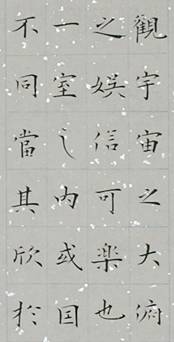 觀宇宙之大俯
之娛信可樂也
一室之內或因
不同當其欣於